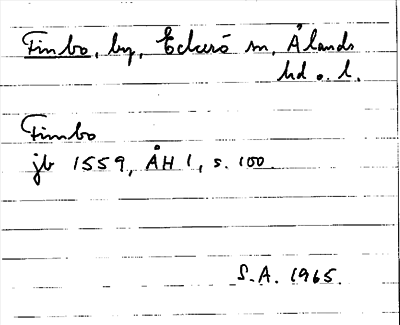 Finbo, by, Eckerö sn, Ålands
hd o. l.
Finbo
jb 1559, ÅH 1, s. 100.
S.A. 1965.